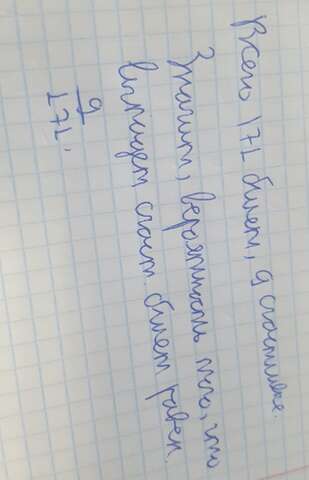 Всего 171 билет, 9 счастливые.
Значит, вероятность того, что
выпадет счаст. билет равен
9
171.